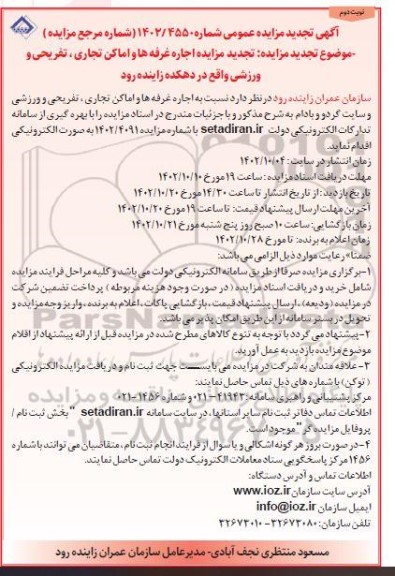 نوبت دوم
آگهی تجدید مزایده عمومی شماره ۱۴۰۲/۴۵۵۰ (شماره مرجع مزایده)
-موضوع تجدید مزایده: تجدید مزایده اجاره غرفه ها و اماکن تجاری، تفریحی و
ورزشی واقع در دهکده زاینده رود
سازمان عمران زاینده رود در نظر دارد نسبت به اجاره غرفه ها و اماکن تجاری، تفریحی و ورزشی
و سایت گردو و بادام به شرح مذکور و با جزئیات مندرج در اسناد مزایده را با بهره گیری از سامانه
تدارکات الکترونیکی دولت setadiran.ir با شماره مزایده ۱۴۰۲/۴۰۹۱ به صورت الکترونیکی
اقدام نماید.
زمان انتشار در سایت: ۱۴۰۲/۱۰/۰۴
مهلت دریافت اسناد مزایده: ساعت ۱۹ مورخ ۱۴۰۲/۱۰/۱۰
تاریخ بازدید: از تاریخ انتشار تا ساعت ۱۴/۳۰ مورخ ۱۴۰۲/۱۰/۲۰
آخرین مهلت ارسال پیشنهاد قیمت: تا ساعت ۱۹ مورخ ۱۴۰۲/۱۰/۲۰
زمان بازگشایی: ساعت ۱۰ صبح روز پنج شنبه مورخ ۱۴۰۲/۱۰/۲۱
زمان اعلام به برنده: تا مورخ ۱۴۰۲/۱۰/۲۸
ضمنا" رعایت موارد ذیل الزامی می باشد:
۱-برگزاری مزایده صرفا از طریق سامانه الکترونیکی دولت می باشد و کلیه مراحل فرایند مزایده
شامل خرید و دریافت اسناد مزایده (در صورت وجود هزینه مربوطه) پرداخت تضمین شرکت
در مزایده (ودیعه)، ارسال پیشنهاد قیمت، بازگشایی پاکات، اعلام به برنده، واریز وجه مزایده و
تحویل در بستر سامانه از این طریق امکان پذیر می باشد.
۲-پیشنهاد می گردد با توجه به تنوع کالاهای مطرح شده در مزایده قبل از ارائه پیشنهاد از اقلام
موضوع مزایده بازدید به عمل آورید.
۳-علاقه مندان به شرکت در مزایده می بایست جهت ثبت نام و دریافت مزایده الکترونیکی
(توکن) با شماره های ذیل تماس حاصل نمایند:
مرکز پشتیبانی و راهبری سامانه: ۴۱۹۴۳-۰۲۱ و شماره ۱۴۵۶-۰۲۱
اطلاعات تماس دفاتر ثبت نام سایر استانها، در سایت سامانه setadiran.ir "بخش ثبت نام /
پروفایل مزایده گر" موجود است.
۴-در صورت بروز هر گونه اشکالی و یا سوال از فرایند انجام ثبت نام، متقاضیان می توانند با شماره
۱۴۵۶ مرکز پاسخگویی ستاد معاملات الکترونیک دولت تماس حاصل نمایند.
اطلاعات تماس و آدرس دستگاه:
آدرس سایت سازمان www.ioz.ir
ایمیل سازمان info@ioz.ir
تلفن سازمان: ۳۲۶۷۳۰۸۰-۳۲۶۷۳۰۱۰
مسعود منتظری نجف آبادی-مدیرعامل سازمان عمران زاینده رود